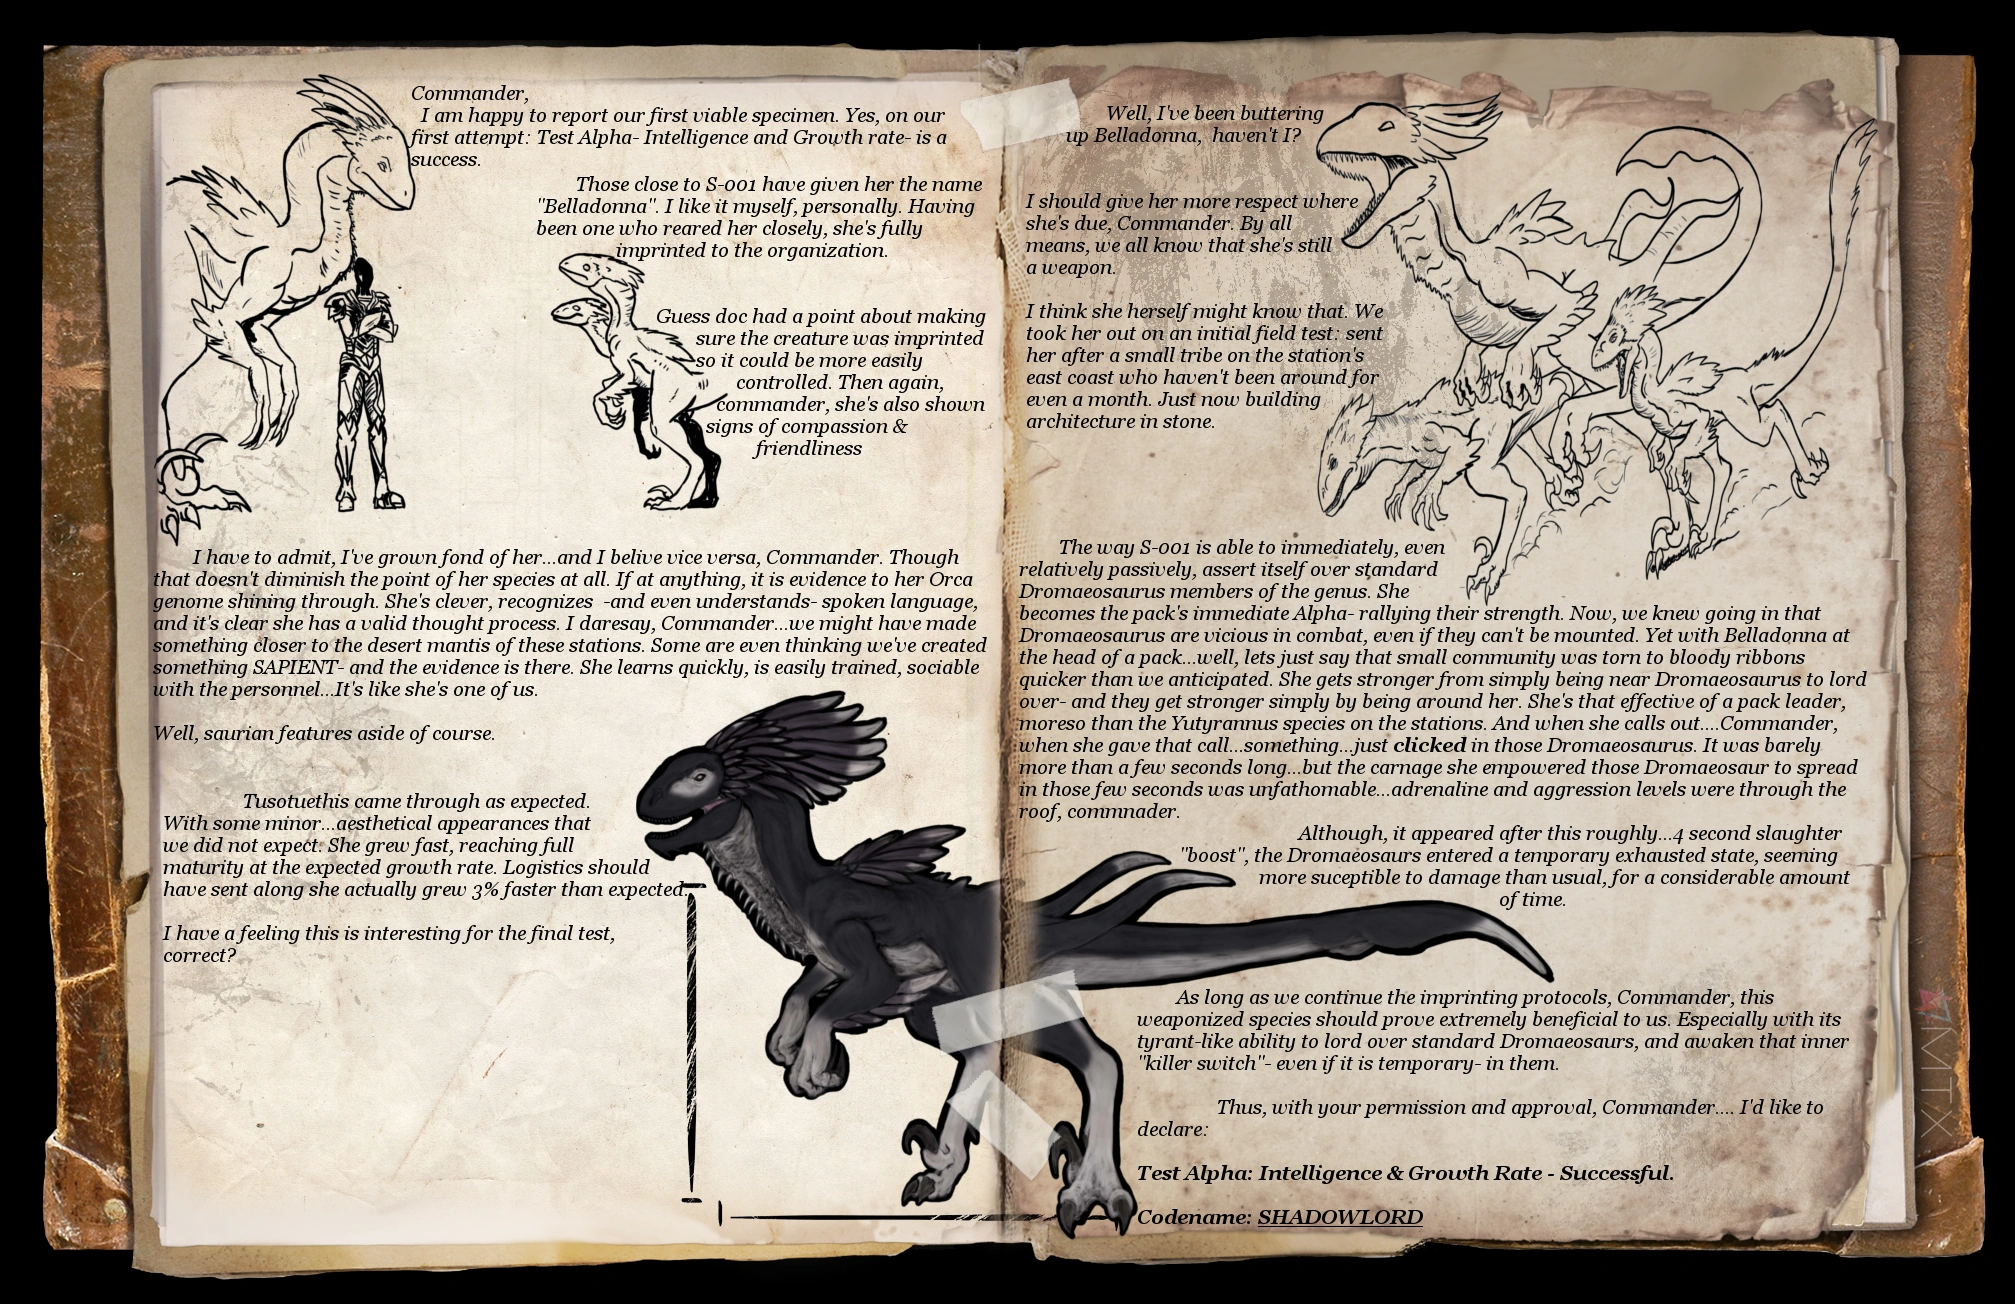 Commander,
I am happy to report our first viable specimen. Yes, on our
first attempt: Test Alpha- Intelligence and Growth rate- is a
success.
Those close to S-001 have given her the name
"Belladonna". I like it myself, personally. Having
been one who reared her closely, she's fully
imprinted to the organization.
Guess doc had a point about making
sure the creature was imprinted
so it could be more easily
controlled. Then again,
commander, she's also shown
signs of compassion &
friendliness
I have to admit, I've grown fond of her...and I belive vice versa, Commander. Though
that doesn't diminish the point of her species at all. If at anything, it is evidence to her Orca
genome shining through. She's clever, recognizes -and even understands- spoken language,
and it's clear she has a valid thought process. I daresay, Commander...we might have made
something closer to the desert mantis of these stations. Some are even thinking we've created
something SAPIENT- and the evidence is there. She learns quickly, is easily trained, sociable
with the personnel...It's like she's one of us.
Well, saurian features aside of course.
Tusotuethis came through as expected.
With some minor...aesthetical appearances that
we did not expect. She grew fast, reaching full
maturity at the expected growth rate. Logistics should
have sent along she actually grew 3% faster than expected..
I have a feeling this is interesting for the final test,
correct?
Well, I've been buttering
up Belladonna, haven't I?
I should give her more respect where
she's due, Commander. By all
means, we all know that she's still
a weapon.
I think she herself might know that. We
took her out on an initial field test: sent
her after a small tribe on the station's
east coast who haven't been around for
even a month. Just now building
architecture in stone.
The way S-001 is able to immediately, even
relatively passively, assert itself over standard
Dromaeosaurus members of the genus. She
becomes the pack's immediate Alpha- rallying their strength. Now, we knew going in that
Dromaeosaurus are vicious in combat, even if they can't be mounted. Yet with Belladonna at
the head of a pack...well, lets just say that small community was torn to bloody ribbons
quicker than we anticipated. She gets stronger from simply being near Dromaeosaurus to lord
over- and they get stronger simply by being around her. She's that effective of a pack leader,
moreso than the Yutyrannus species on the stations. And when she calls out....Commander,
when she gave that call...something...just clicked in those Dromaeosaurus. It was barely
more than a few seconds long...but the carnage she empowered those Dromaeosaur to spread
in those few seconds was unfathomable...adrenaline and aggression levels were through the
roof, commnader.
Although, it appeared after this roughly...4 second slaughter
"boost", the Dromaeosaurs entered a temporary exhausted state, seeming
more suceptible to damage than usual, for a considerable amount
of time.
As long as we continue the imprinting protocols, Commander, this
weaponized species should prove extremely beneficial to us. Especially with its
tyrant-like ability to lord over standard Dromaeosaurs, and awaken that inner
"killer switch"- even if it is temporary- in them.
Thus, with your permission and approval, Commander.... I'd like to
declare:
Test Alpha: Intelligence & Growth Rate - Successful.
Codename: SHADOWLORD